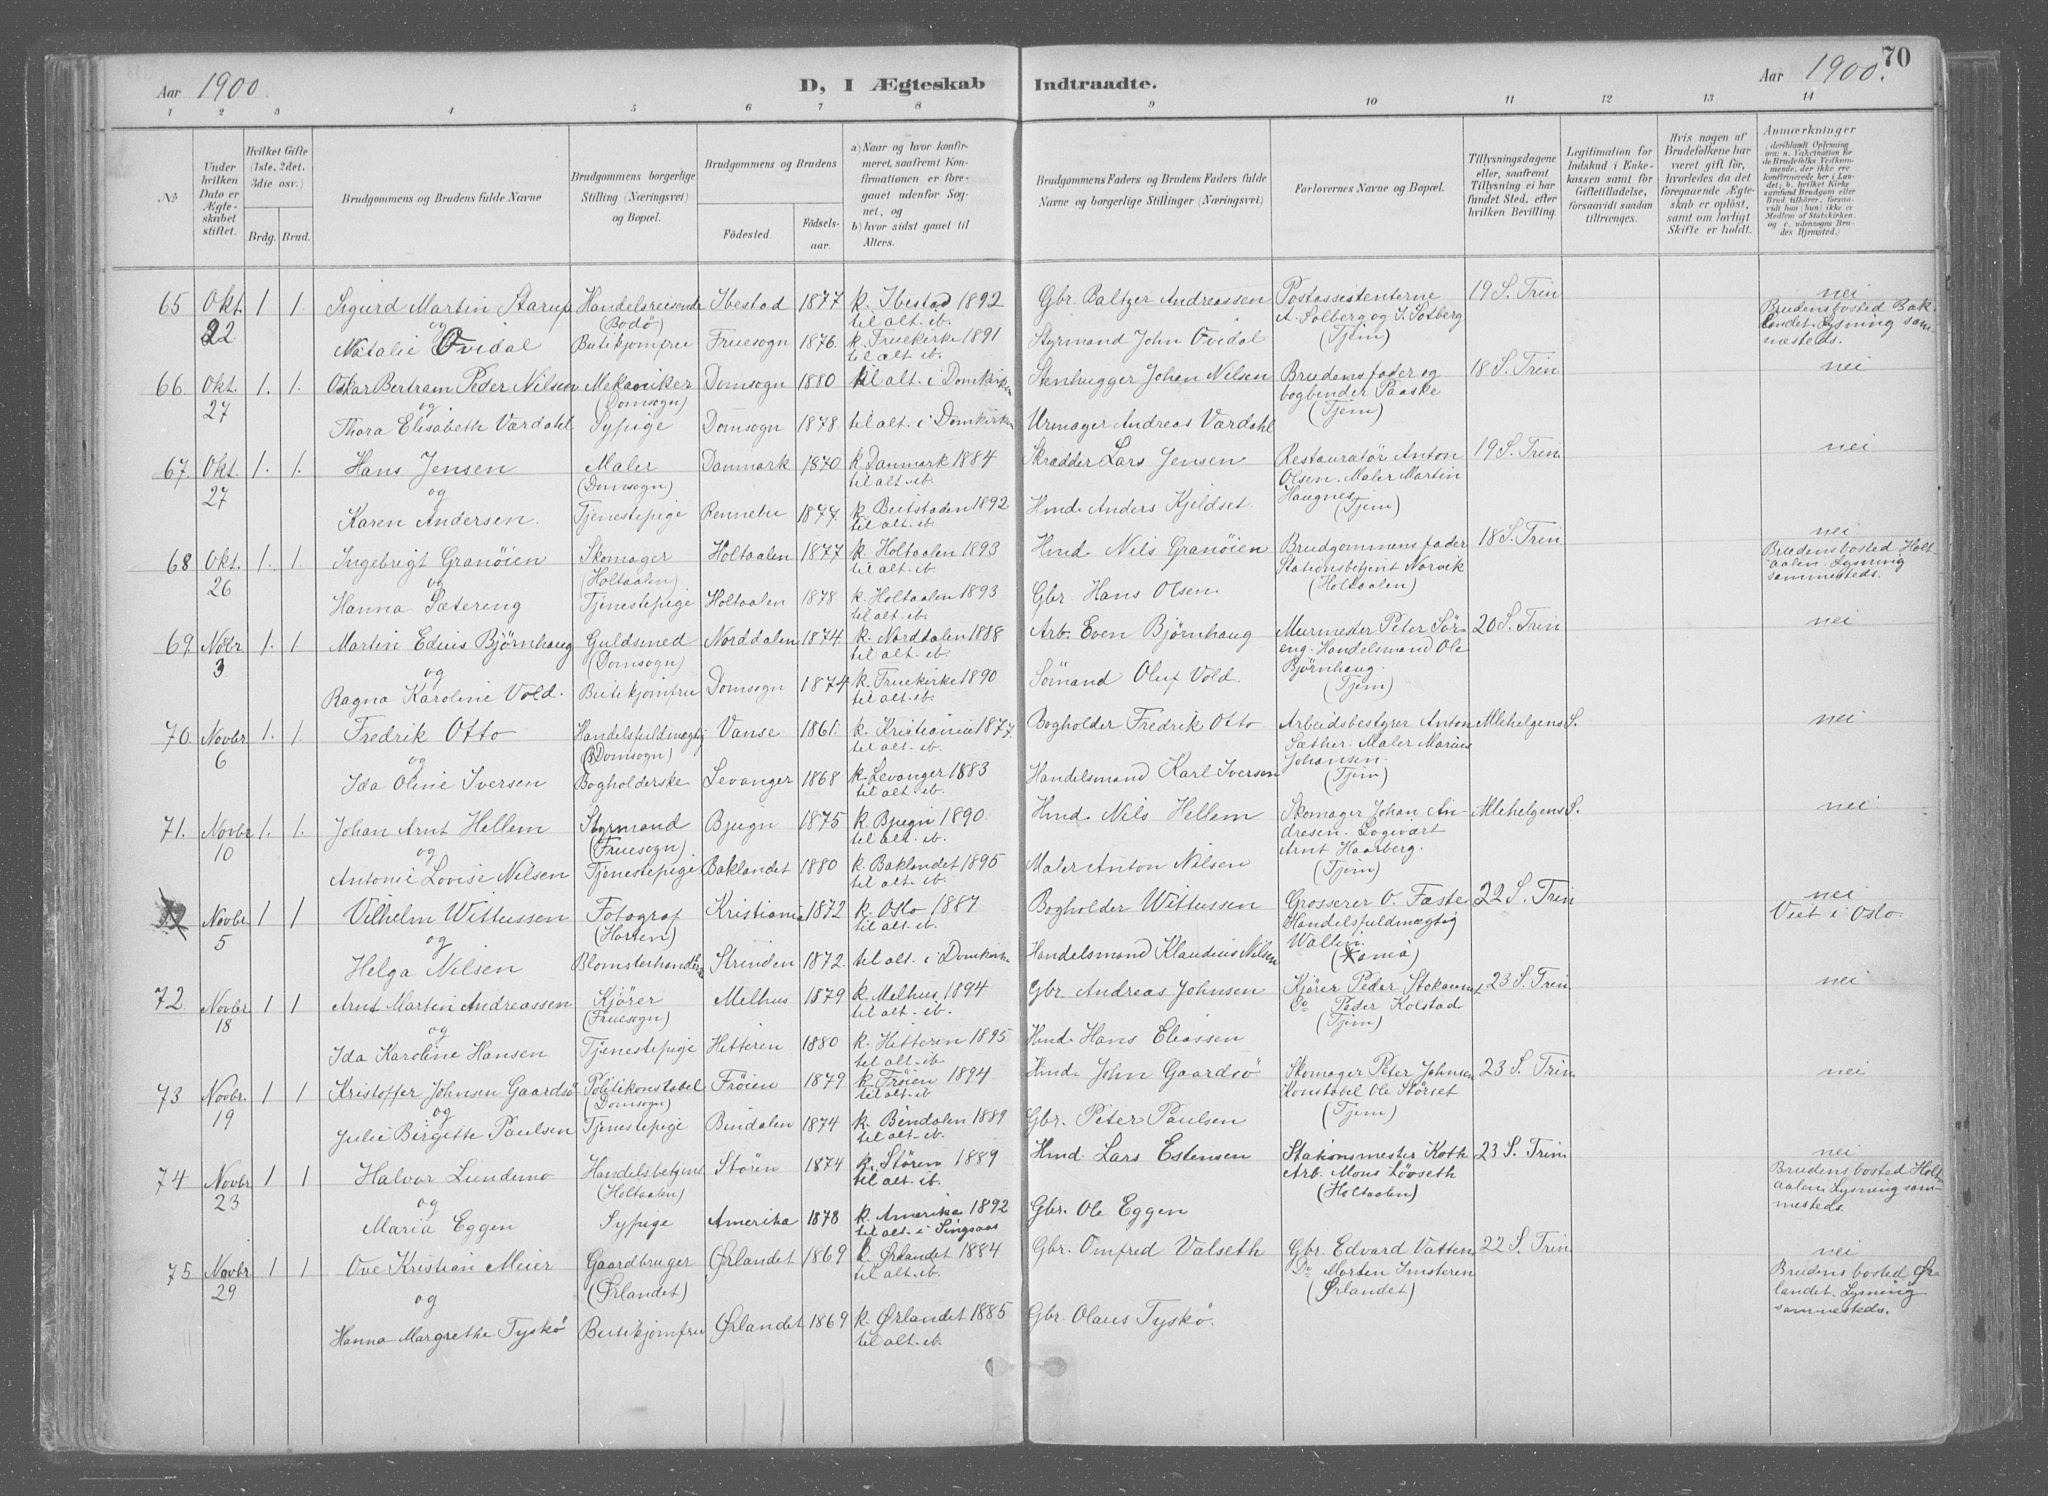 Aar 1900. D, I Ægteskab Indtraadte. Aar 1900. 70
1 2 3 4 5 6 7 8 9 10 11 12 13 14
No
Under hvilken Dato er Ægteskabet stiftet.
Hvilket Gifte (1ste, 2det, 3die osv.)
Brdg. Brud.
Brudgommens og Brudens fulde Navne
Brudgommens borgerlige Stilling (Næringsvei) og Bopæl.
Brudgommens og Brudens
Fødested. Fødselsaar.
a) Naar og hvor konfirmeret, saafremt Konfirmationen er foregaaet udenfor Sognet, og
b) hvor sidst gaaet til Alters.
Brudgommens Faders og Brudens Faders fulde Navne og borgerlige Stillinger (Næringsvei)
Forlovernes Navne og Bopæl.
Tillysningsdagene eller, saafremt Tillysning ei har fundet Sted, efter hvilken Bevilling.
Legitimation for Indskud i Enkekassen samt for Giftetilladelse, forsaavidt saadan tiltrænges.
Hvis nogen af Brudefolkene har været gift før, hvorledes da det foregaaende Ægteskab er opløst, samt om lovligt Skifte er holdt.
Anmærkninger
65 Okt 22 1 1 Sigurd Martin Starup Handelsreisende (Bodö) Ibestad 1877 k. Ibestad 1892 til alt. ib. Gbr. Baltzer Andreassen Postassistenterne A. Solberg og S. Solberg (Tjem) 19 S. Trin nei Brudens bosted Baklandet. Lysning sammesteds.
og
Natalie Øvidal Butikjomfru Fruesogn 1876. k. Fruekirke 1891 til alt ib. Styrmand John Øvidal
66 Okt. 27 1. 1. Oskar Bertram Peder Nilsen Mekaniker (Domsogn) Domsogn 1880 til alt. i Domkirken Stenhugger Johan Nilsen Brudens fader og bogbinder Paaske (Tjem) 18 S. Trin nei
og
Thora Elisabeth Værdahl Sypige Domsogn 1878 til alt. i Domkirken Urmager Andreas Værdahl
67. Okt. 27 1. 1. Hans Jensen Maler (Domsogn) Danmark 1870 k. Danmark 1884 til alt. ib. Skrædder Lars Jensen Restauratør Anton Olsen. Maler Martin Haugnes (Tjem) 19 S. Trin nei
og
Karen Andersen. Tjenestepige Rennebu 1877. k. Beitstaden 1892 til alt. ib. Hmd. Anders Kjeldset.
68 Okt. 26 1. 1. Ingebrigt Granöien Skomager (Holtaalen) Holtaalen 1877 k. Holtaalen 1893 til alt. ib. Hmd. Nils Granöien Brudgommens fader Stationsbetjent Norvik (Holtaalen) 18 S. Trin nei Brudens bosted Holtaalen. Lysning sammesteds.
og
Hanna Sætereng Tjenestepige Holtaalen 1878 k. Holtaalen 1893 til alt. ib. Gbr. Hans Olsen
69 Novbr 3 1. 1 Martin Edvis Björnhaug Guldsmed (Domsogn) Norddalen 1874 k. Norddalen 1888 til alt. ib. Arb. Even Björnhaug Murmester Peter Söreng. Handelsmand Ole Björnhaug. (Tjem) 20 S. Trin nei
og
Ragna Karoline Vold. Butikjomfru Domsogn 1874 k. Fruekirke 1890 til alt. ib. Sömand Oluf Vold.
70. Novbr 6 1. 1. Fredrik Otto Handelsfuldmægtig (Domsogn) Vanse 1861. k. Kristiania 1877. til alt. ib. Bogholder Fredrik Otto Arbeidsbestyrer Anton Sæther. Maler Marius Johansen. (Tjem) Allehelgens S. nei
og
Ida Oline Iversen Bogholderske Levanger 1868 k. Levanger 1883 til alt. ib. Handelsmand Karl Iversen
71. Novbr 10 1. 1. Johan Arnt Hellem Styrmand (Fruesogn) Bjugn 1875 k. Bjugn 1890. til alt. ib. Hmd. Nils Hellem Skomager Johan Andresen. Logevært Arnt Haarberg. (Tjem) Allehelgens S. nei
og
Antonie Lovise Nilsen Tjenestepige Baklandet 1880 k. Baklandet 1895 til alt. ib. Maler Anton Nilsen
Novbr 5 1 1 Vilhelm Wittussen Fotograf (Horten) Kristiania 1872 k. Oslo 1887 til alt. ib. Bogholder Wittussen Grosserer O. Fæste Handelsfuldmægtig Wallin. (Xania) 22 S. Trin nei Viet i Oslo.
og
Helga Nilsen Blomsterhandlerske Strinden 1872. til alt. i Domkirken Handelsmand Klaudius Nilsen
72 Novbr 18 1 1 Arnt Martin Andreassen Kjörer (Fruesogn) Melhus 1879 k. Melhus 1894 til alt. ib. Gbr. Andreas Johnsen Kjörer Peder Stokaunet Do Peder Kolstad (Tjem) 23 S. Trin nei
og
Ida Karoline Hansen Tjenestepige Hitteren 1880 k. Hitteren 1895 til alt. ib. Hmd. Hans Eliassen
73 Novbr. 19 1 1 Kristoffer Johnsen Gaardsö Politikonstabel (Domsogn) Fröien 1879 k. Fröien 1894 til alt. ib Hmd. John Gaardsö Skomager Peter Johnsen Konstabel Ole Störset (Tjem) 23 S. Trin nei
og
Julie Birgitte Paulsen Tjenestepige Bindalen 1874 k. Bindalen 1889 til alt. ib. Gbr. Peter Paulsen
74 Novbr 23 1 1 Halvor Lundemo Handelsbetjent (Holtaalen) Stören 1874 k. Stören 1889 til alt. ib. Hmd. Lars Estensen Stationsmester Koth Arb. Mons Lövseth (Holtaalen) 23 S. Trin nei Brudens bosted Holtaalen. Lysning sammesteds.
og
Maria Eggen Sypige Amerika 1878 k. Amerika 1892 til alt. i Singsaas Gbr. Ole Eggen
75 Novbr. 29 1 1 Ove Kristian Meier Gaardbruger (Ørlandet) Ørlandet 1869 k. Ørlandet 1884 til alt. ib. Gbr. Omfred Valseth Gbr. Edvard Vatten Do Morten Imsteren (Ørlandet) 22 S. Trin nei Brudens bosted Ørlandet. Lysning sammesteds.
og
Hanna Margrethe Tyskö Butikjomfru Ørlandet 1869 k. Ørlandet 1885 til alt. ib. Gbr. Olaus Tyskö.